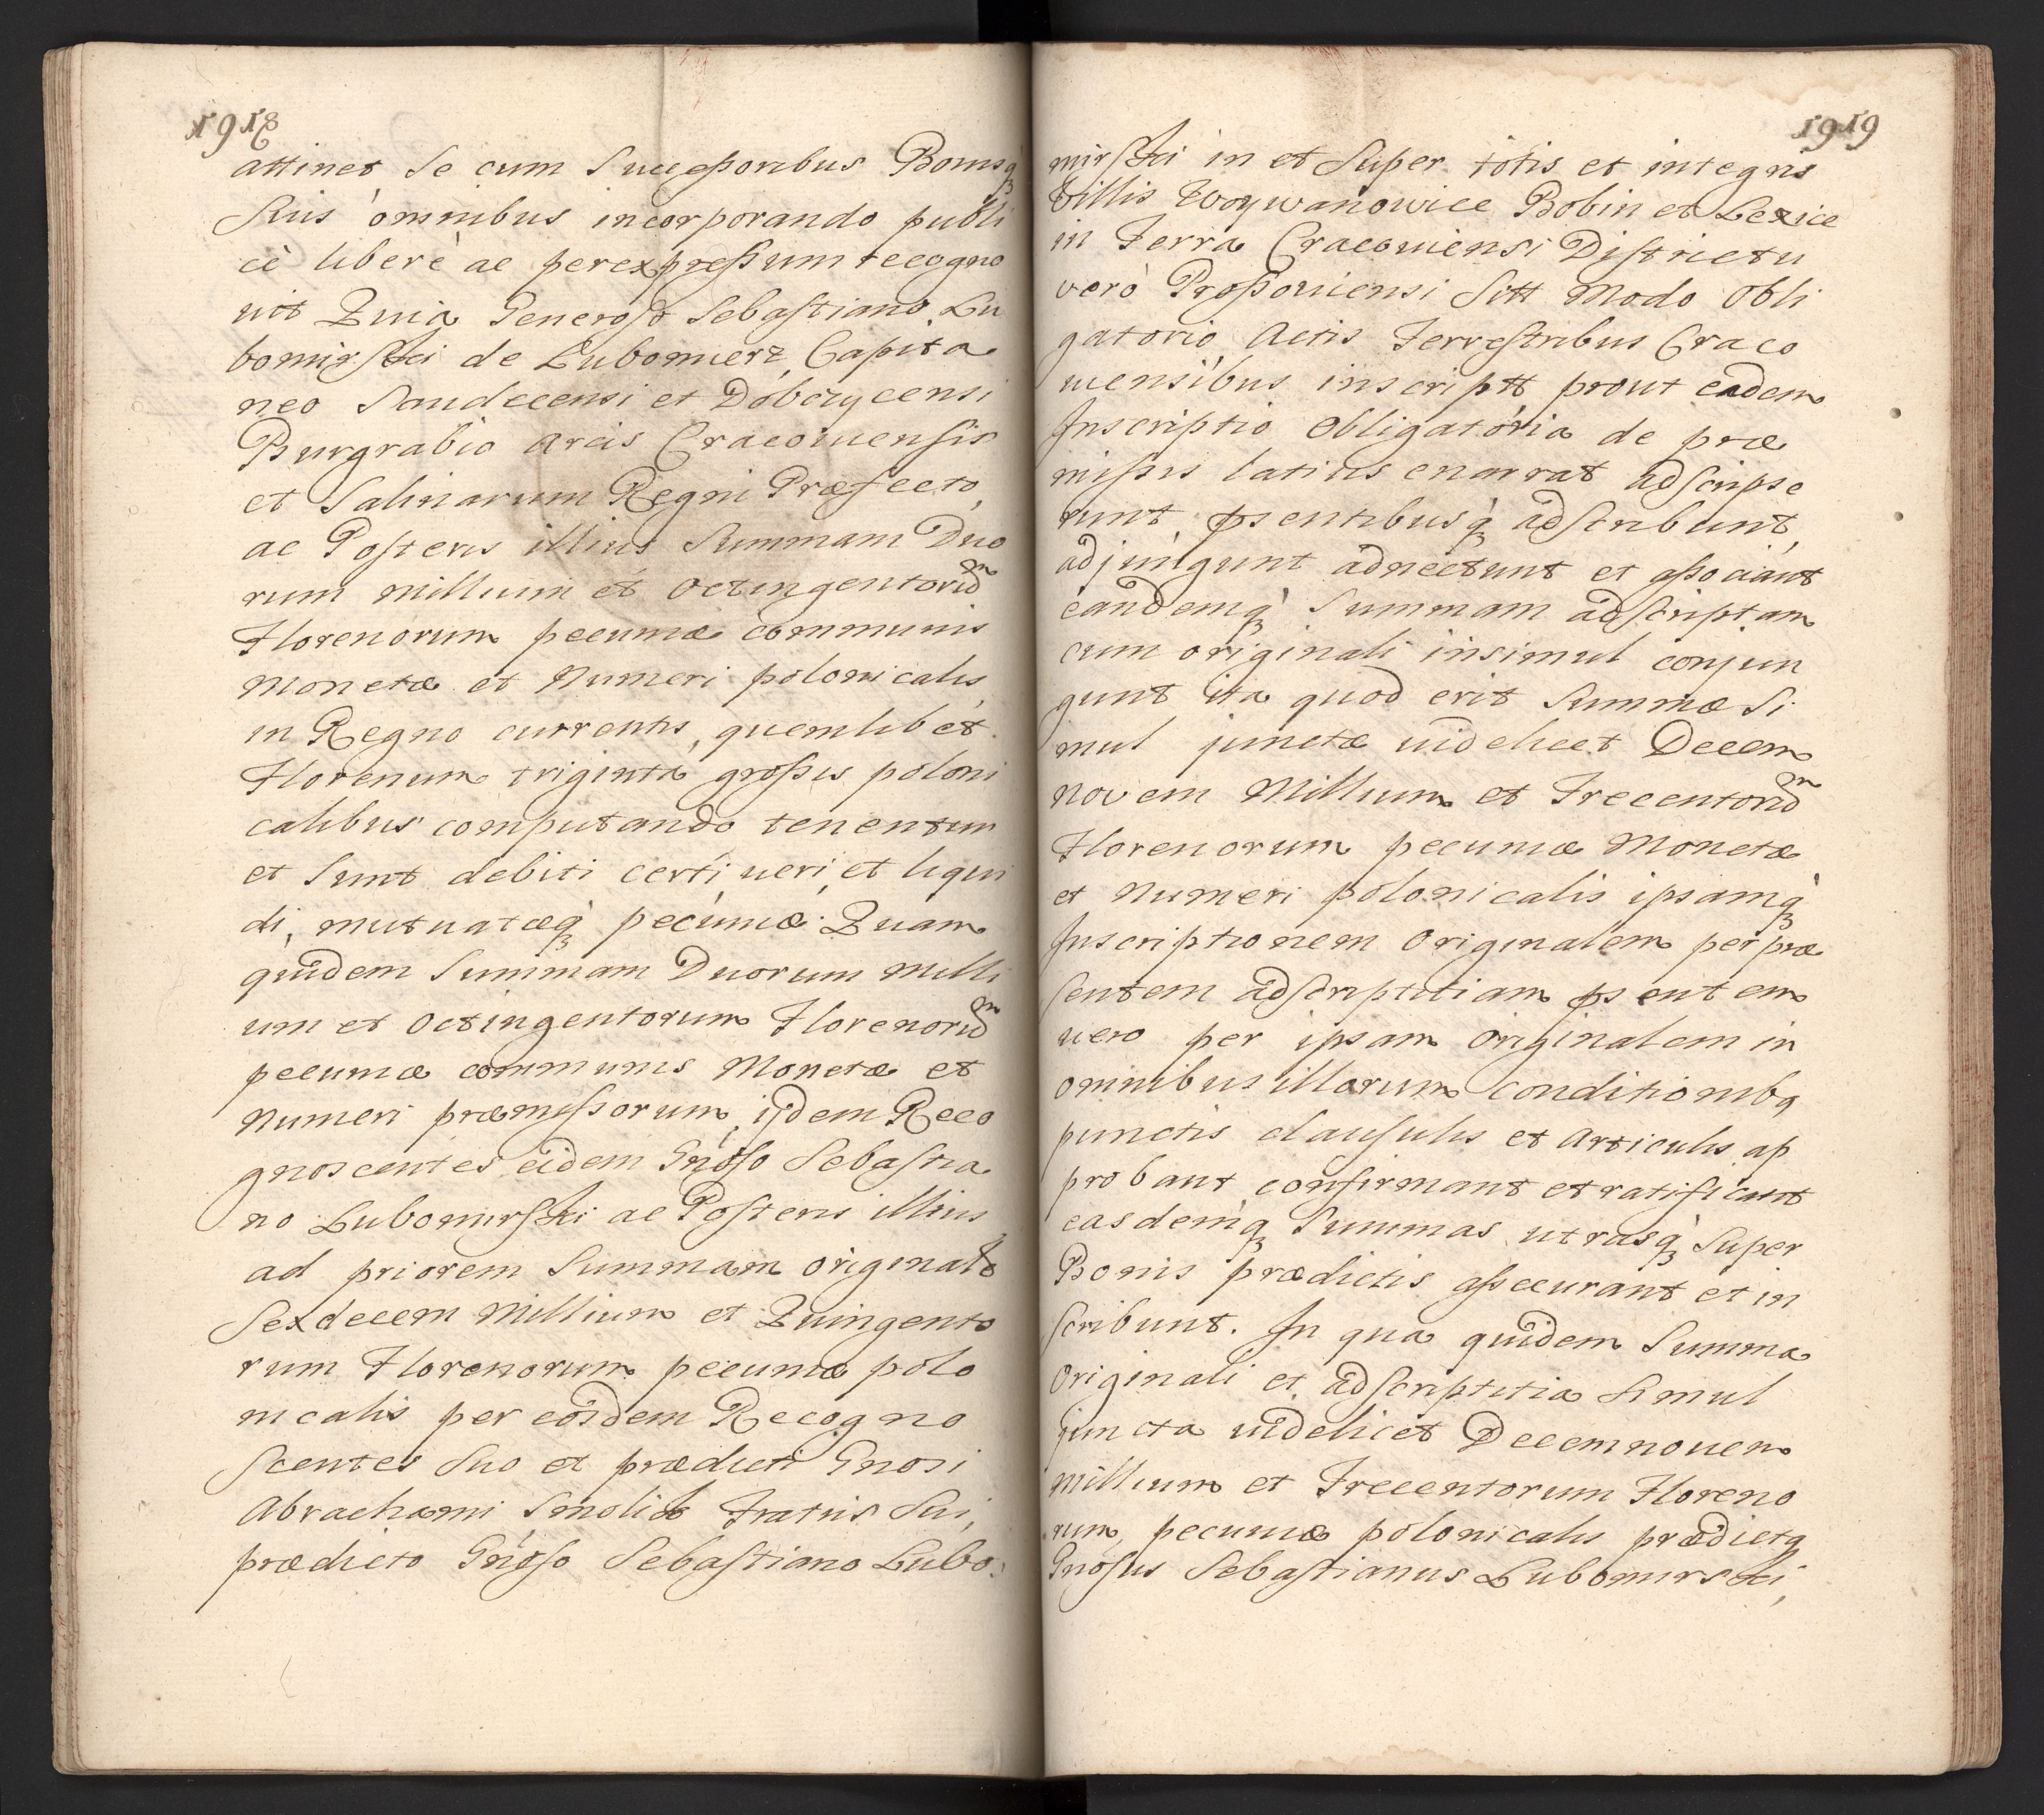 1918
attinet Se cum Successoribus Bonisq3
Suis omnibus incorporando publi
cè liberè ac per expressum recogno
uit Quia Generoso Sebastiano Lu
bomirski de Lubomierz Capita
neo Sandecensi et Dobczycensi
Burgrabio Arcis Cracouiensis
et Salinarum Regni Præfecto,
ac Posteris illius Summam Duo
rum millium et Octingentorũ
Florenorum pecuniæ communis
Monetæ et Numeri polonicalis
in Regno currentis, quemlibet
Florenum triginta grossis poloni
calibus computando tenentur
et Sunt debiti certi ueri, et liqui
di, mutuatæq3 pecuniæ. Quam
quidem Summam Duorum milli
um et Octingentorum Florenorũ
pecuniæ communis Monetæ et
Numeri præmissorum, ijdem Reco
gnoscentes eidem Gnoso Sebastia
no Lubomirski ac Posteris illius
ad priorem Summam Originalẽ
Sexdecem Millium et Quingento
rum Florenorum pecuniæ polo
nicalis per eosdem Recogno
Scentes Suo et prædicti Gnosi
Abrachami Smolik Fratris Sui,
prædicto Gnoso Sebastiano Lubo:
1919
mirski in et Super totis et integris
Villis Woywanowice Bobin et Lexice
in Terra Cracouiensi Districtu
verò Prossouiensi Sitt Modo Obli
gatorio Actis Terrestribus Craco
uiensibus inscriptt prout eadem
Inscriptio Obligatoria de præ
missis latius enarrat adscripse
runt, psentibusq3 adscribunt,
adjungunt adnectunt et associant
eandemq3 Summam adscriptam
cum originali insimul conjun
gunt ita quod erit Summæ Si
mul junctæ uidelicet Decem
novem Millium et Trecentorũ
Florenorum pecuniæ Monetæ
et Numeri polonicalis ipsamq3
Inscriptionem Originalem per præ
sentem adscriptitiam psentem
uero per ipsam Originalem in
omnibus illarum Conditionibq
punctis clausulis et Articulis ap
probant confirmant et ratificant
easdemq3 Summas utrasq3 Super
Bonis prædictis assecurant et in
scribunt. In qua quidem Summa
Originali et adscriptitia Simul
juncta uidelicet Decemnouem
Millium et Trecentorum Floreno
rum, pecuniæ polonicalis prædictq
Gnosus Sebastianus Lubomirski,